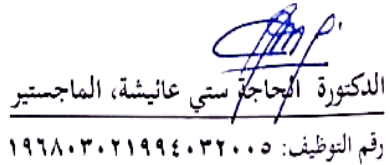 الدكتورة الحاجة ستي عائيشة، الماجستير
رقم التوظيف: ١٩٦٨٠٣٠٢١٩٩٤٠٣٢٠٠٥